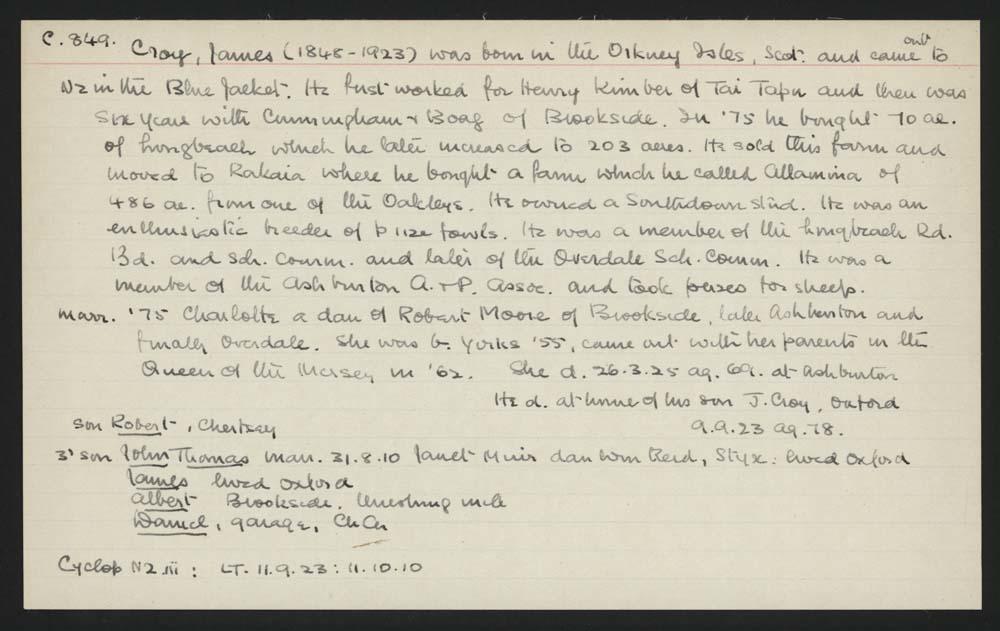 C.849. Croy, James (1845-1923) was born in the Orkney Isles, Scot. and came out to
NZ in the Blue Jacket. He first worked for Henry Kimber of Tai Tapu and then was
six years with Cunningham & Boag of Brookside. In '75 he bought 70 ac.
of Longbeach which he later increased to 203 acres. He sold this farm and
moved to Rakaia where he bought a farm which he called Allamina of
486 ac. from one of the Oakleys. He owned a Southdown stud. He was an
enthusiastic breeder of prize fowls. He was a member of the Longbeach Rd.
Bd. and sch. comm. and later of the Overdale Sch. Comm. He was a
member of the Ashburton A. & P. Assoc. and took prizes for sheep.
marr. '75 Charlotte a dau of Robert Moore of Brookside, later Ashburton and
finally Overdale. She was b. Yorks '55, came out with her parents in the
Queen of the Mersey in '62. She d. 26.3.25 ag. 69. at Ashburton
He d. at home of his son J. Croy, Oxford
9.9.23 ag. 78.
son Robert, Chertsey
3' son John Thomas marr. 31.8.10 Janet Muir dau Wm Reid, Styx: lived Oxford
James lived Oxford
Albert Brookside. threshing mill
Daniel, garage, ChCh
Cyclop NZ iii : LT. 11.9.23 : 11.10.10